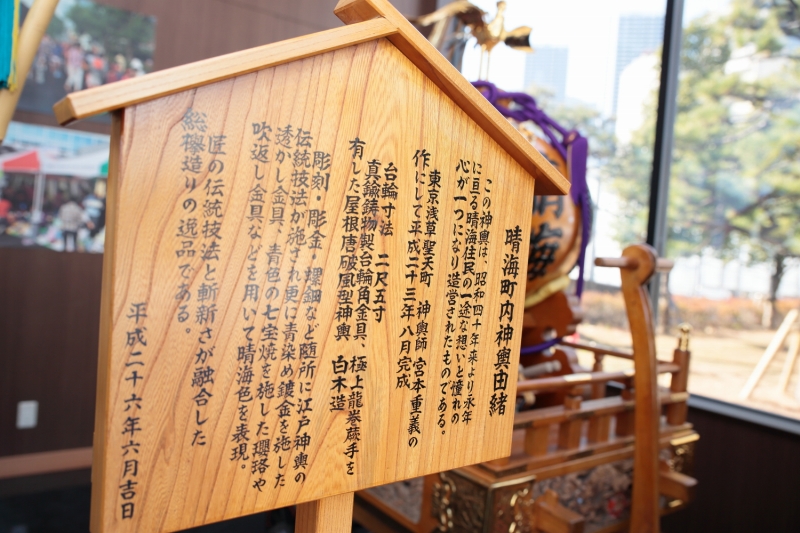 晴海町内神輿由緒
この神輿は、昭和四十年来より永年
に亘る晴海住民の一途な想いと憧れの
心が一つになり造営されたものである。
東京浅草聖天町 神輿師 宮本重義の
作にして平成二十三年八月完成
台輪寸法 二尺五寸
真鍮鋳物製台輪角金具、極上龍巻蕨手を
有した屋根唐破風型神輿 白木造
彫刻・彫金・螺鈿など随所に江戸神輿の
伝統技法が施され更に青染め鍍金を施した
透かし金具、青色の七宝焼を施した瓔珞や
吹返し金具などを用いて晴海色を表現。
匠の伝統技法と斬新さが融合した
総欅造りの逸品である。
平成二十六年六月吉日
晴海